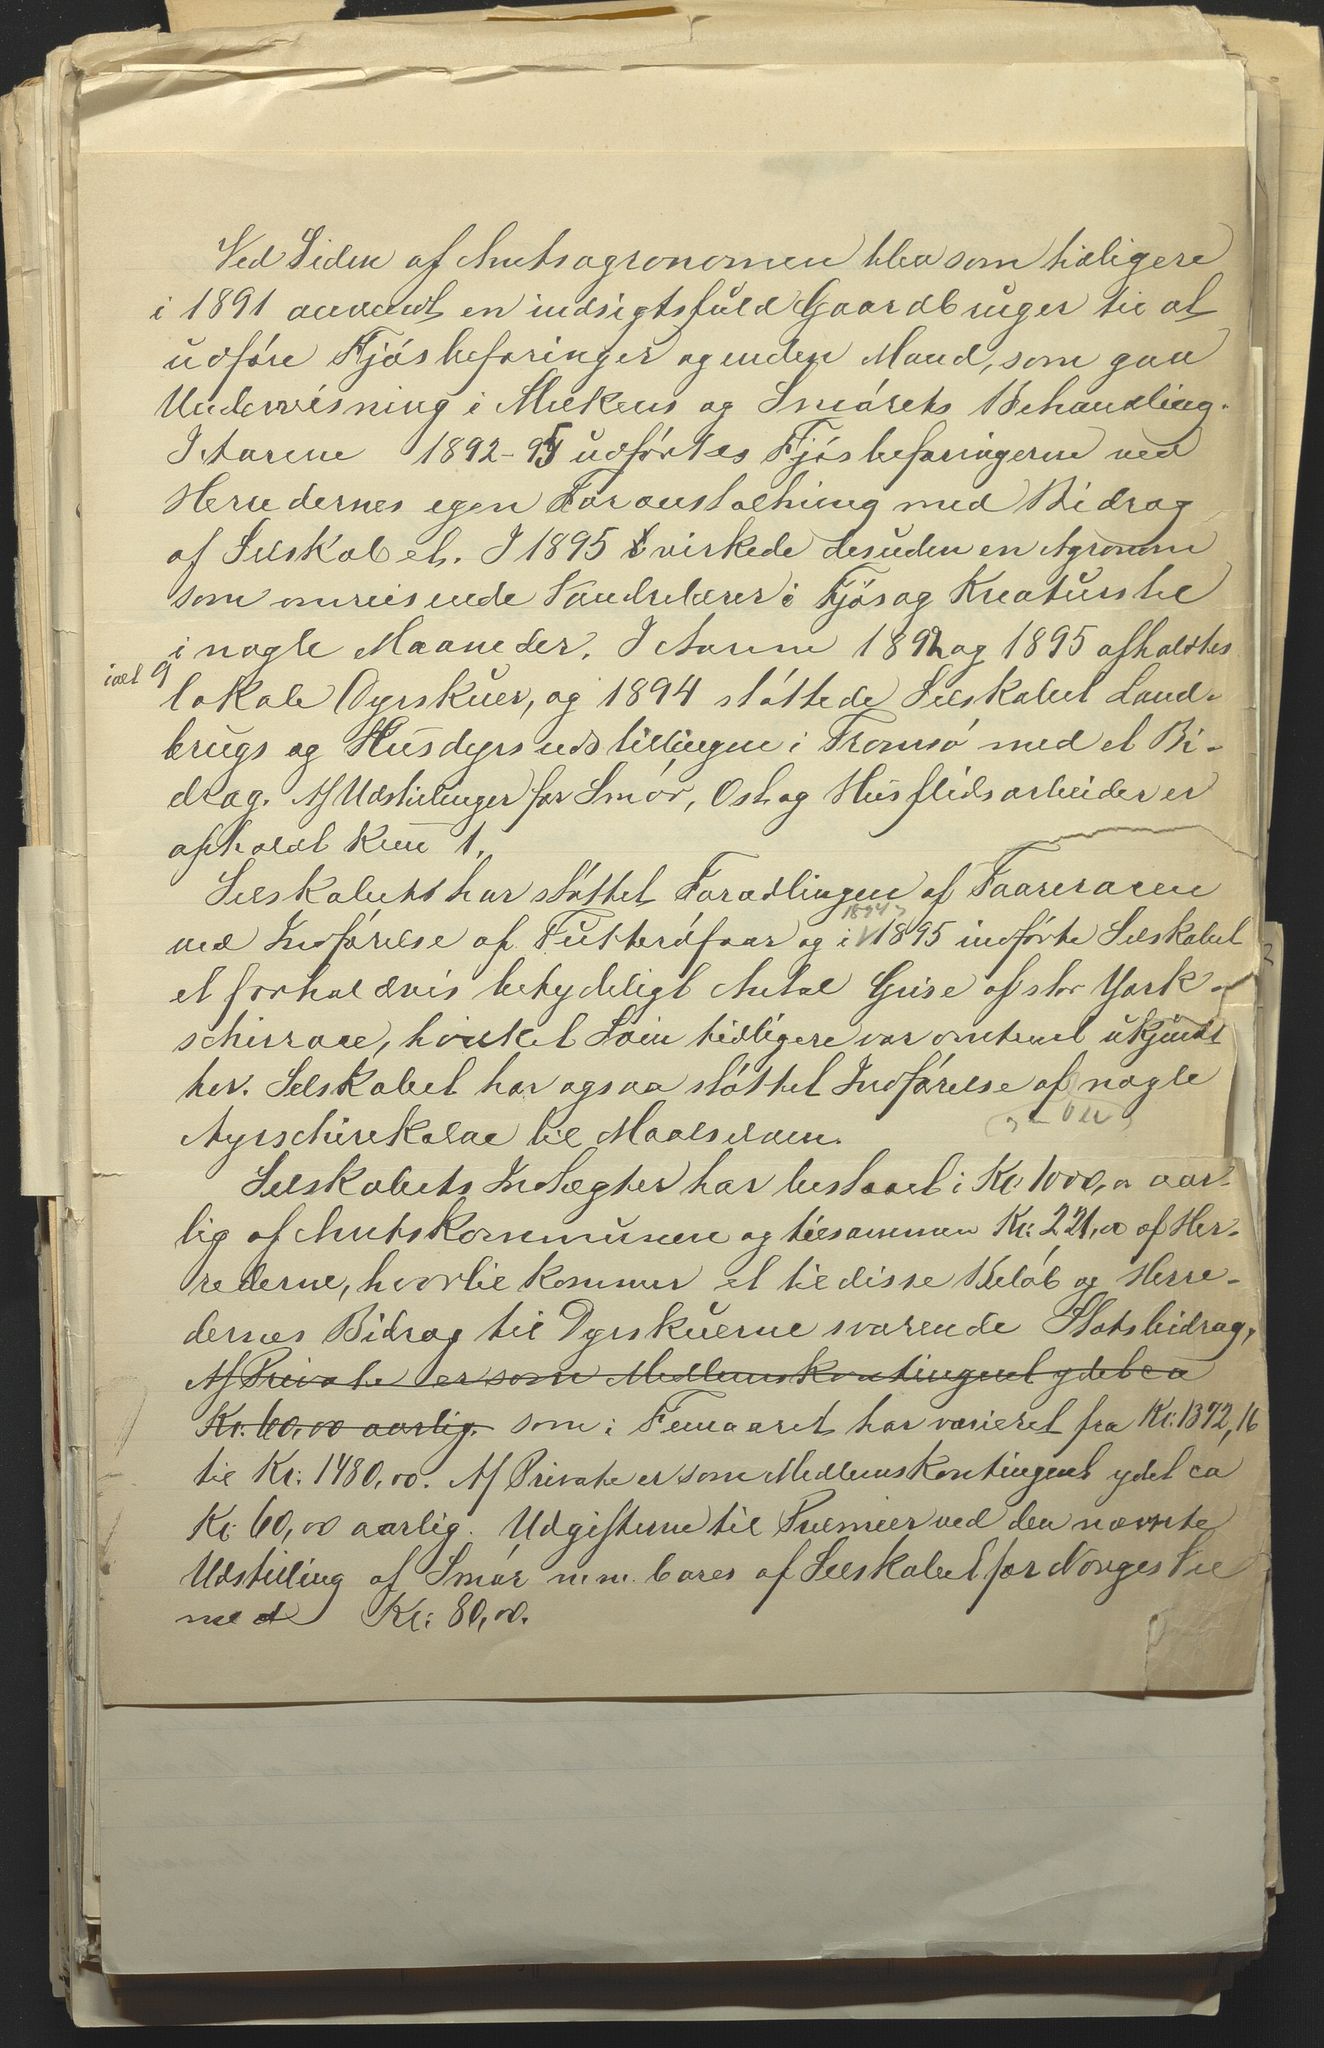 Ved Siden af Amtsagronomen blev som tidligere
i 1891 anvendt en indsigtsfuld Gaardbruger til at
udføre Fjøsbefaringer og enden Mand, som gav
Undervisning i Melkens og Smørets Behandling.
I Aarene 1892-95 udførtes Fjøsbefaringerne ved
Herredernes egen Foranstaltning med Bidrag
af Selskabet. I 1895 virkede desuden en Agronom
som omreisende Vandrelærer i Fjøs og Kreaturstel
i nogle Maaneder. I Aarene 1892 og 1895 afholdtes
ialt 9
lokale Dyrskuer, og 1894 støttede Selskabet Land-
brugs og Husdyrsudstillingen i Tromsø med et Bi-
drag. Af Udstillinger for Smør, Ost og Husflidsarbeider er
afholdt kun 1.
Selskabet har støttet Forædlingen af Faareracen
1894
ved Indførelse af Futterøfaar og i 1895 indførte Selskabet
et forholdsvis betydeligt Antal Grise af stor York-
schirrace, hvilket Svin tidligere var omtrent ukjendt
her. Selskabet har ogsaa støttet Indførelse af nogle
Ayrschirekalve til Maalselven.
Selskabets Indtægter har bestaaet i Kr. 1000,00 aar-
lig af Amtskommunen og tilsammen Kr: 221,00 af Her-
rederne, hvortil kommer et til disse Beløb og Herre-
dernes Bidrag til Dyrskuerne svarende Statsbidrag,
Af Private er som Medlemskontingent ydet ca
Kr. 60,00 aarlig. som i Femaaret har varieret fra Kr: 1372,16
til Kr: 1480,00. Af Private er som Medlemskontingent ydet ca
Kr. 60,00 aarlig. Udgifterne til Præmier ved den nævnte
Udstilling af Smør m.m. bares af Selskabet for Norges Vel
med Kr: 80,00.